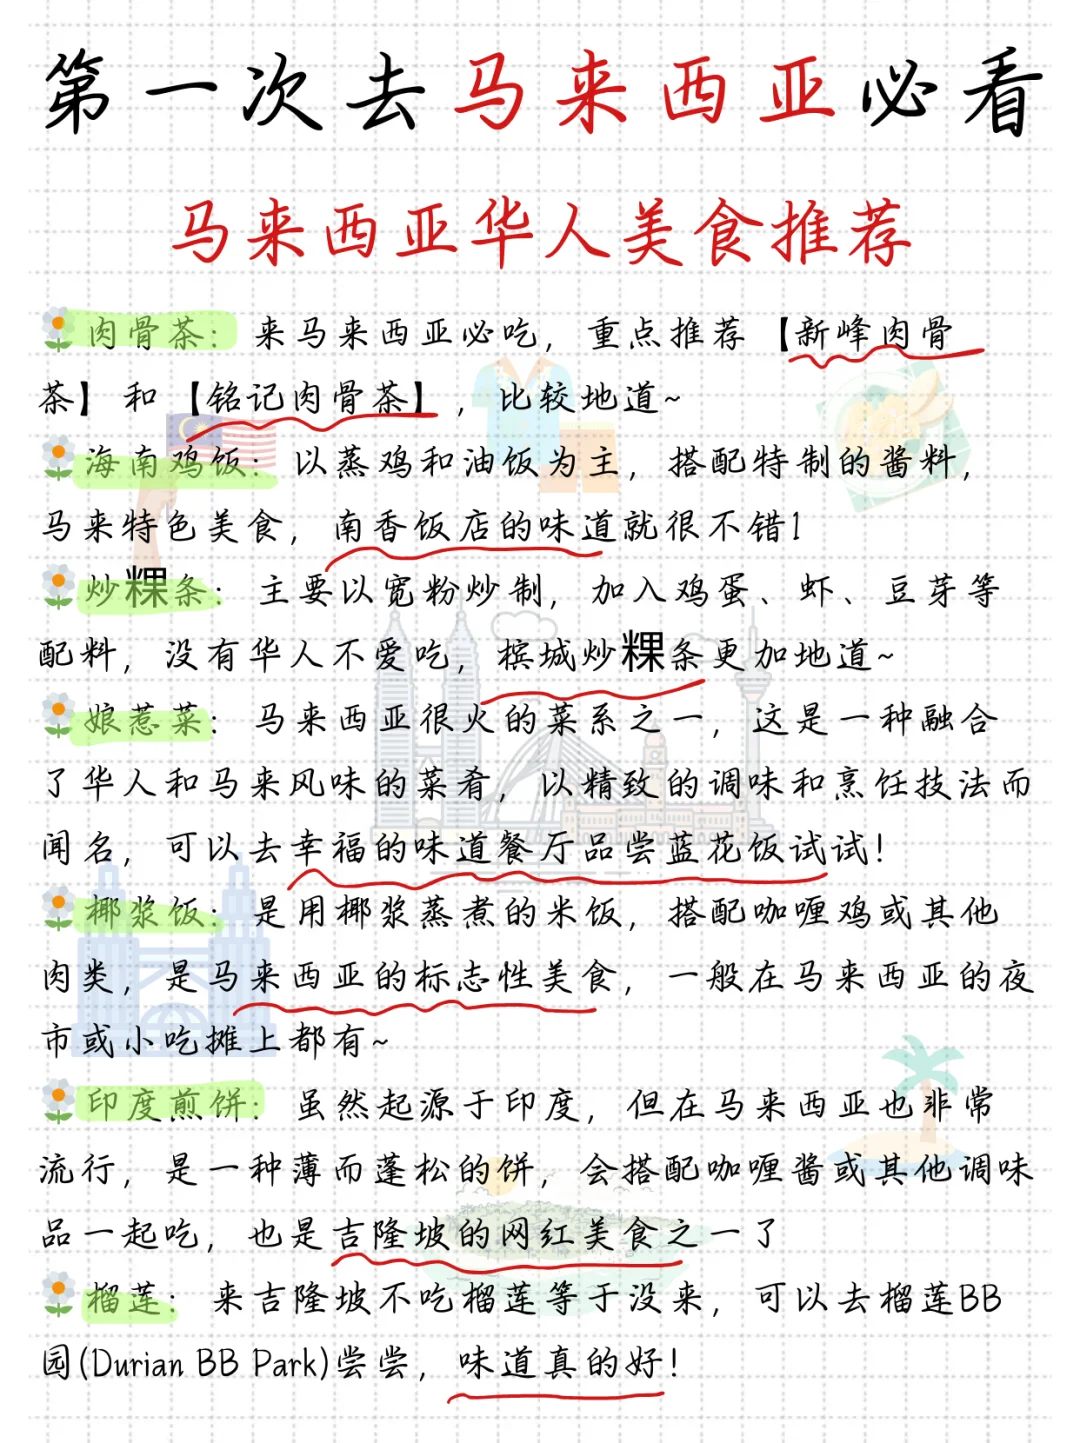 第一次去马来西亚必看
马来西亚华人美食推荐
肉骨茶：来马来西亚必吃，重点推荐【新峰肉骨
茶】和【铭记肉骨茶】，比较地道~
海南鸡饭：以蒸鸡和油饭为主，搭配特制的酱料，
马来特色美食，南香饭店的味道就很不错!
炒粿条：主要以宽粉炒制，加入鸡蛋、虾、豆芽等
配料，没有华人不爱吃，槟城炒粿条更加地道~
娘惹菜：马来西亚很火的菜系之一，这是一种融合
了华人和马来风味的菜肴，以精致的调味和烹饪技法而
闻名，可以去幸福的味道餐厅品尝蓝花饭试试!
椰浆饭：是用椰浆蒸煮的米饭，搭配咖喱鸡或其他
肉类，是马来西亚的标志性美食，一般在马来西亚的夜
市或小吃摊上都有~
印度煎饼：虽然起源于印度，但在马来西亚也非常
流行，是一种薄而蓬松的饼，会搭配咖喱酱或其他调味
品一起吃，也是吉隆坡的网红美食之一了
榴莲：来吉隆坡不吃榴莲等于没来，可以去榴莲BB
园(Durian BB Park)尝尝，味道真的好!